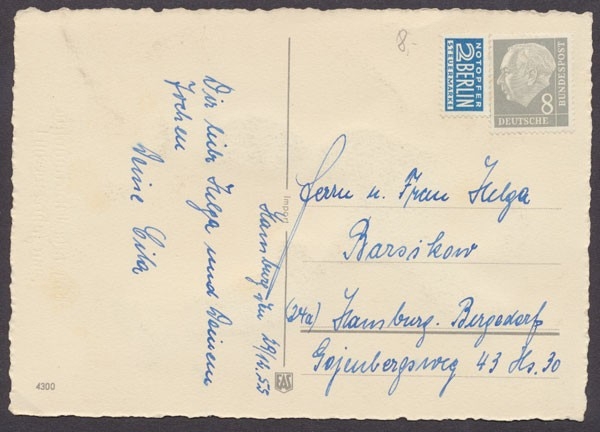 8.-
NOTOPFER
2 BERLIN
STEUERMARKE
DEUTSCHE
BUNDESPOST
8
Dir liebe Helga und Deinem
Jochen
Deine Gika
Hamburg, den
Herrn u. Frau Helga
Barsikow
(24a) Hamburg-Bergedorf
Gojenbergsweg 43 Hs. 30
4300
EAS